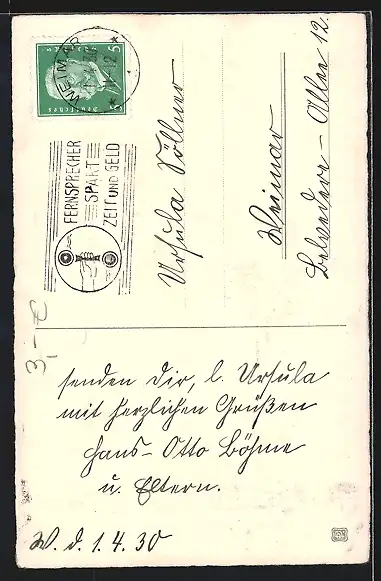 WEIMAR
12
5
Deutsches
FERNSPRECHER
SPART
ZEIT UND GELD
Ursula Söllner
Weimar
Belvedere-Allee 12.
3,- €
senden Dir, l. Ursula
mit herzlichen Grüßen
Hans-Otto Böhme
u. Eltern.
W. d. 1.4.30